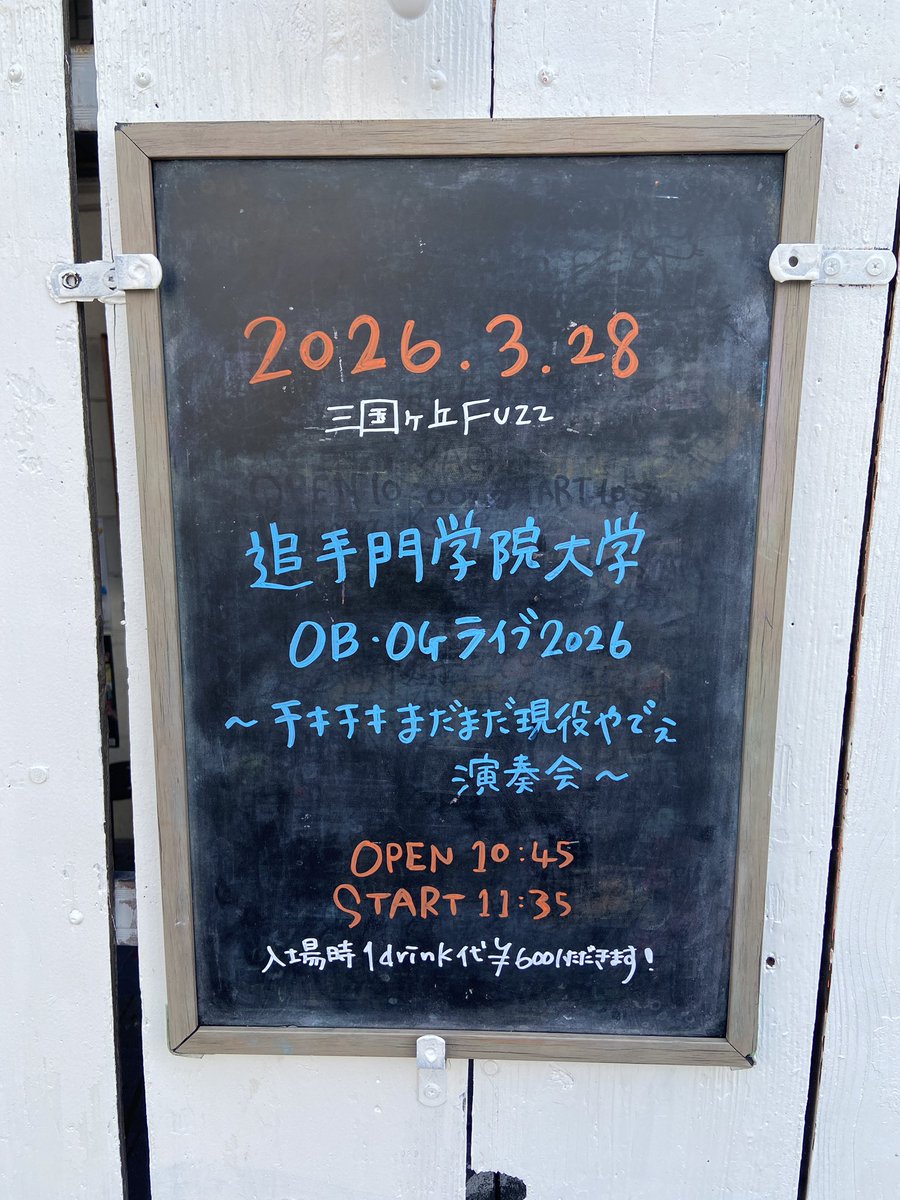 2026.3.28
三国ヶ丘Fuzz
追手門学院大学
OB・OGライブ2026
～チキチキまだまだ現役やでぇ
演奏会～
OPEN 10:45
START 11:35
入場時1drink代¥600いただきます!